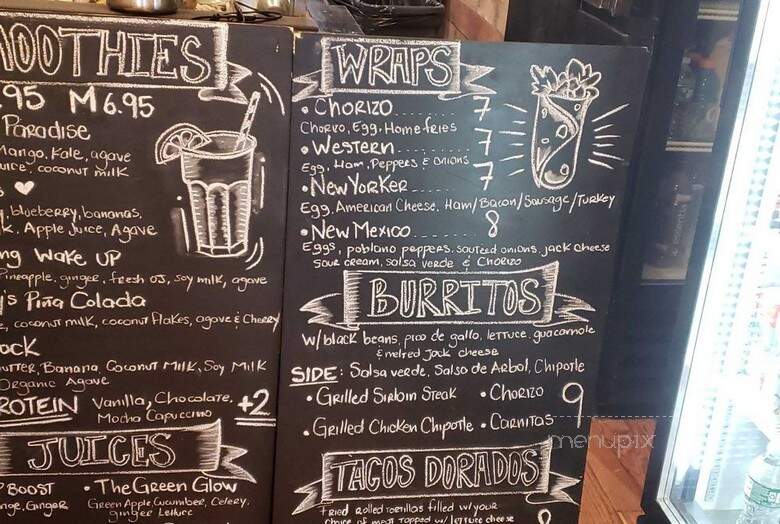 SMOOTHIES
.95 M 6.95
Paradise
Mango, Kale, agave
Juice, coconut milk
blueberry, bananas,
Apple Juice, Agave
Wake up
Pineapple, ginger, fresh OJ, soy milk, agave
Piña Colada
coconut milk, coconut flakes, agave & Cherry
Banana, Coconut Milk, Soy Milk
Organic Agave
PROTEIN Vanilla, Chocolate, +2
Mocha Capuccino
JUICES
BOOST • The Green Glow
Ginger Green Apple, Cucumber, Celery,
ginger Lettuce
WRAPS
• Chorizo 7
Chorizo, Egg, Home fries
• Western 7
Egg, Ham, Peppers & onions
• New Yorker 7
Egg, American Cheese, Ham/Bacon/Sausage/Turkey
• New Mexico 8
Eggs, poblano peppers, sauteed onions, jack cheese
sour cream, salsa verde & Chorizo
BURRITOS
w/ black beans, pico de gallo, lettuce, guacamole
& melted Jack cheese
SIDE: Salsa verde, Salsa de Arbol, Chipotle
• Grilled Sirloin Steak • Chorizo 9
• Grilled Chicken Chipotle • Carnitas
menupix
TACOS DORADOS
Fried rolled tortillas filled w/ your
choice of meat topped w/ lettuce cheese